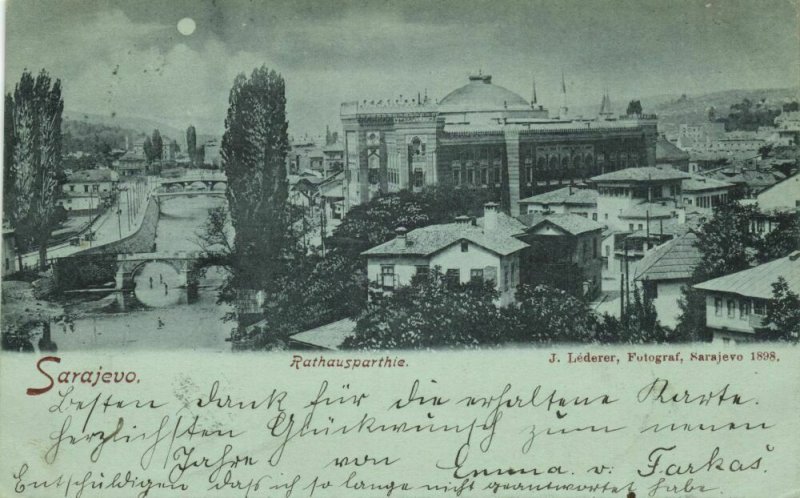 Rathausparthie.
J. Léderer, Fotograf, Sarajevo 1898.
Sarajevo.
Besten Dank für die erhaltene Karte.
herzlichsten Glückwunsch zum neuen
Jahre von Emma v. Farkaś
Entschuldigen dass ich so lange nicht geantwortet habe